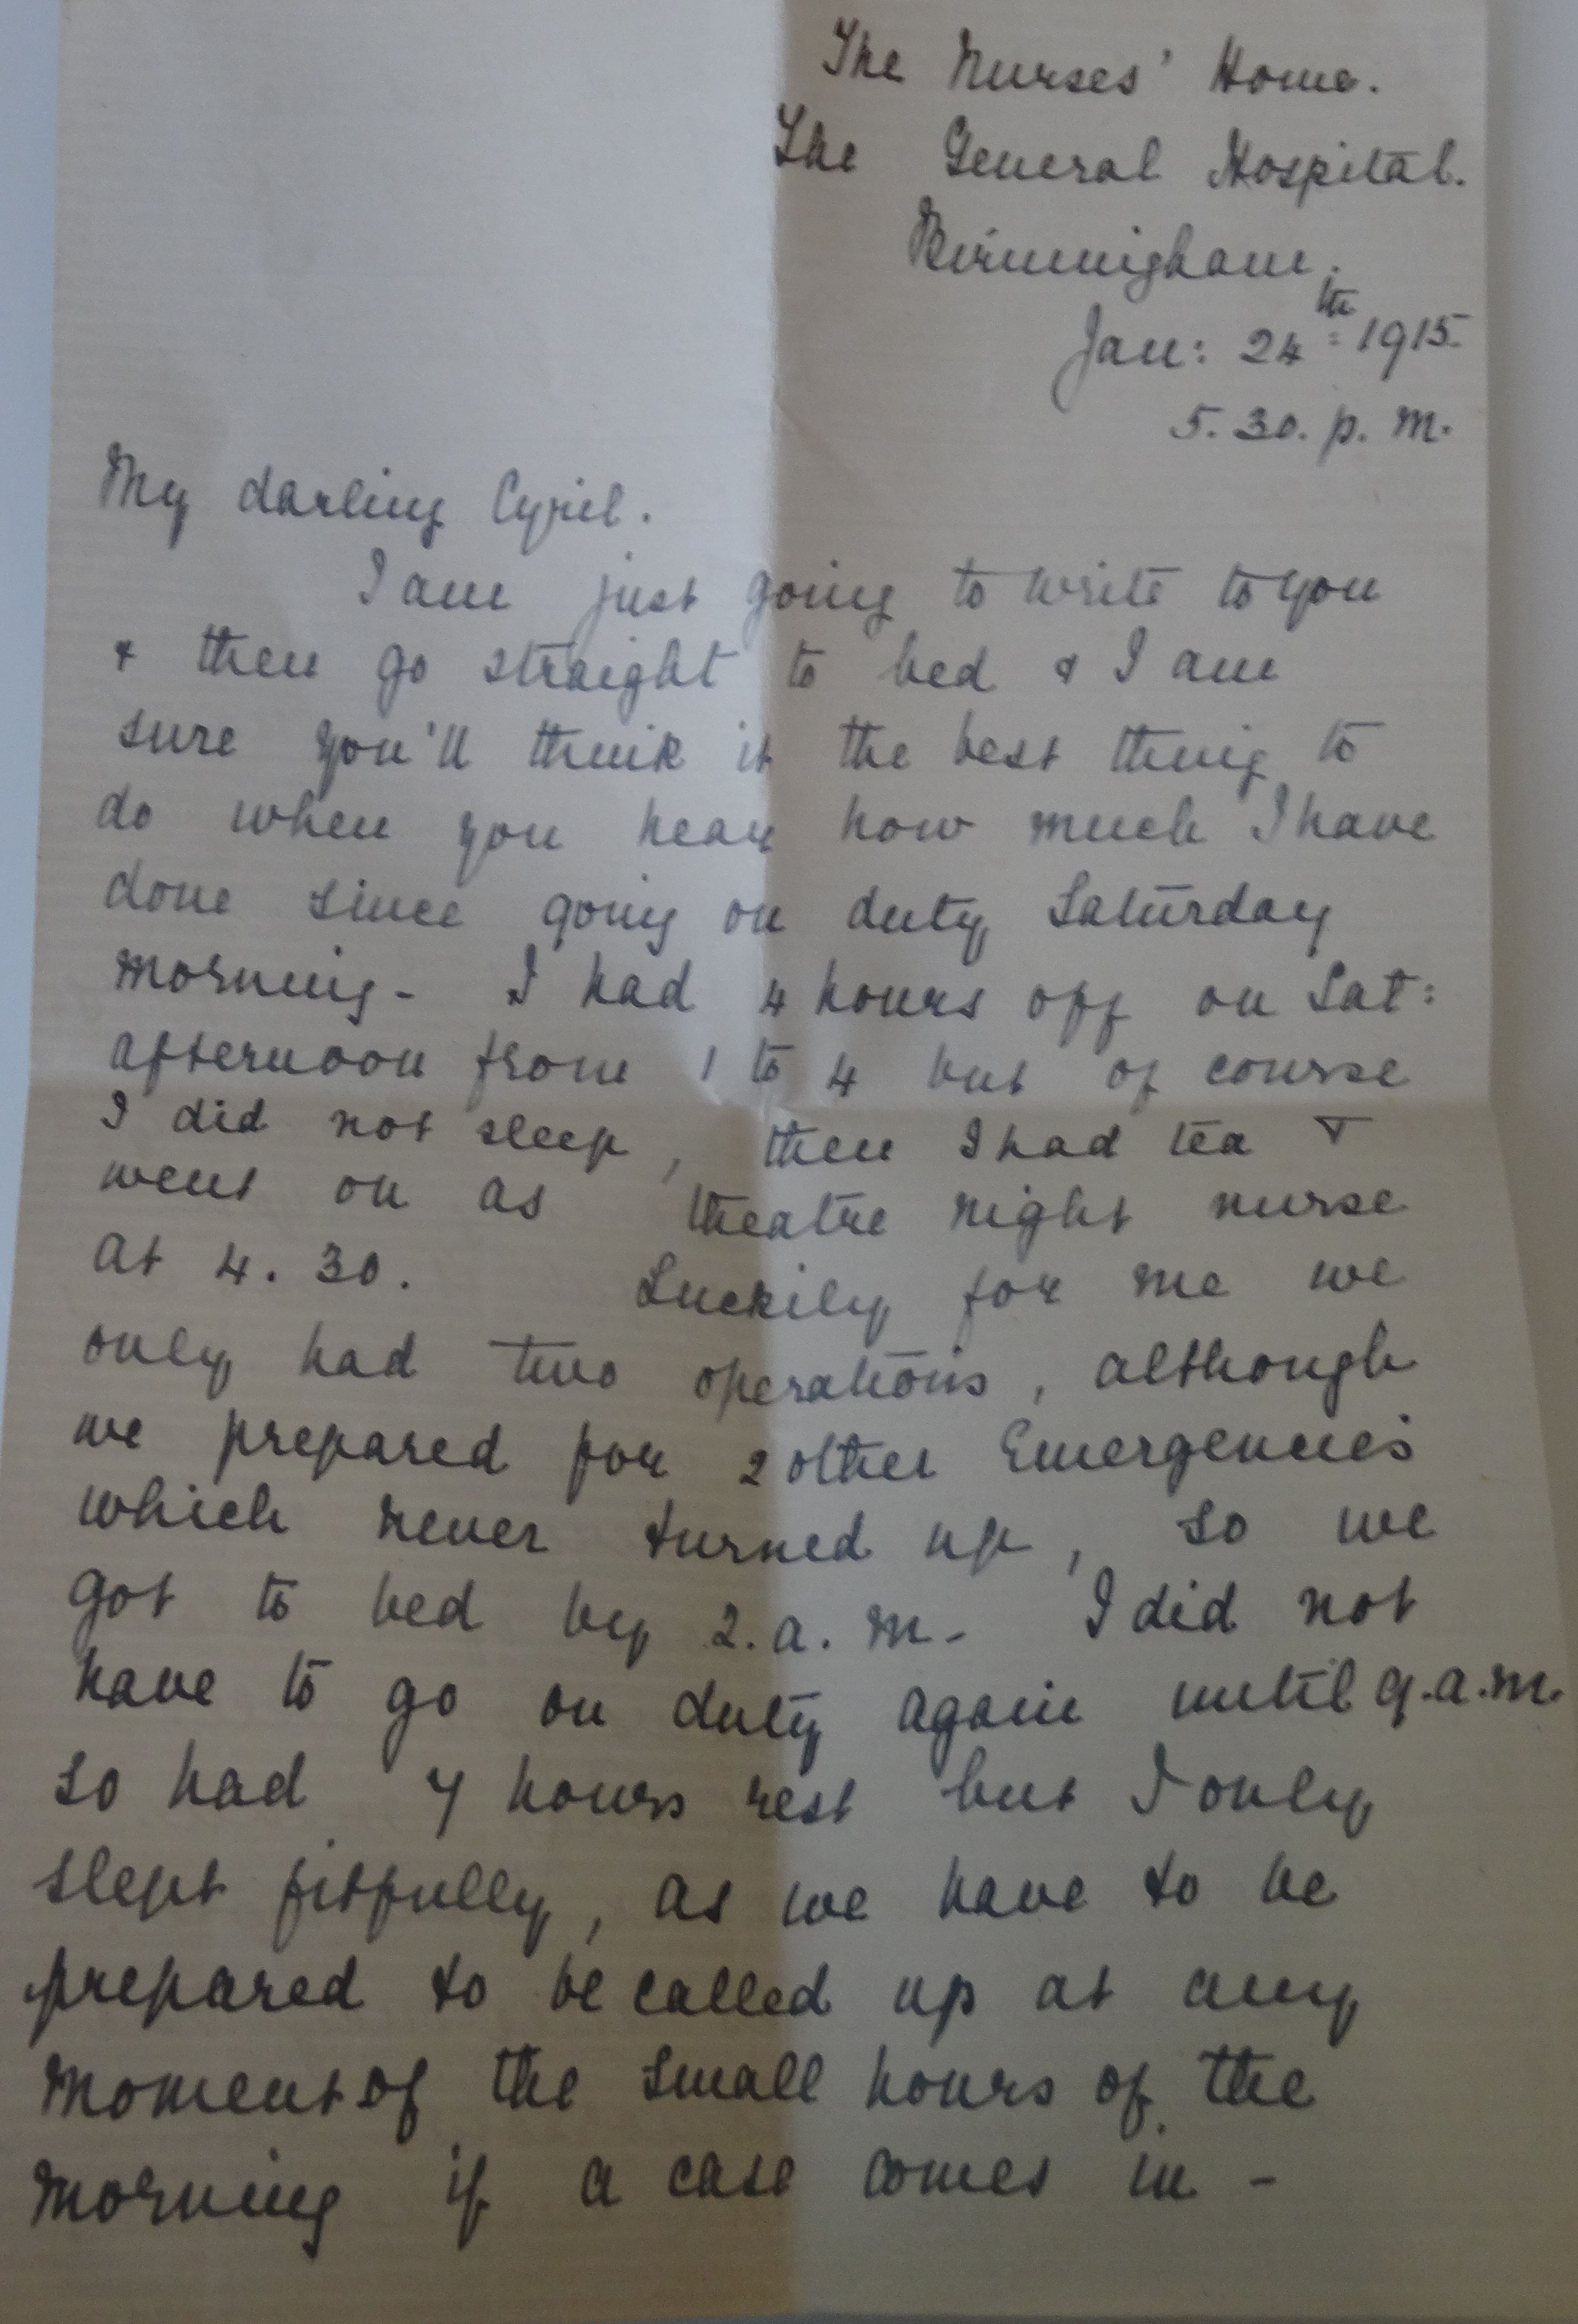 The Nurses' Home.
The General Hospital.
Birmingham.
Jan: 24th 1915.
5. 30. p. m.
My darling Cyril.
I am just going to write to you
& then go straight to bed & I am
sure you'll think it the best thing to
do when you hear how much I have
done since going on duty Saturday
morning - I had 4 hours off on Sat:
afternoon from 1 to 4 but of course
I did not sleep, then I had tea &
went on as theatre night nurse
at 4. 30. Luckily for me we
only had two operations, although
we prepared for 2 other Emergencies
which never turned up, so we
got to bed by 2. a. m - I did not
have to go on duty again until 9. a. m.
so had 7 hours rest but I only
slept fitfully, as we have to be
prepared to be called up at any
moment of the small hours of the
morning if a case comes in -